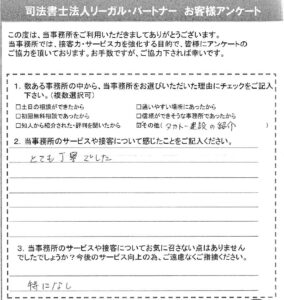 司法書士法人リーガル・パートナー お客様アンケート
この度は、当事務所をご利用いただきましてありがとうございます。
当事務所では、接客力・サービス力を強化する目的で、皆様にアンケートの
ご協力を頂いております。お手数ですが、ご協力下されば幸いです。
1. 数ある事務所の中から、当事務所をお選びいただいた理由にチェックをご記入
下さい。(複数選択可)
□土日の相談ができたから □通いやすい場所にあったから
□初回無料相談であったから □信頼ができそうな事務所であったから
□知人から紹介された・評判を聞いたから ☑その他( 建設の紹介 )
2. 当事務所のサービスや接客について感じたことをご記入ください。
とても丁寧でした
3. 当事務所のサービスや接客についてお気に召さない点はありません
でしたでしょうか?今後のサービス向上の為、ご遠慮なくご指摘ください。
特になし